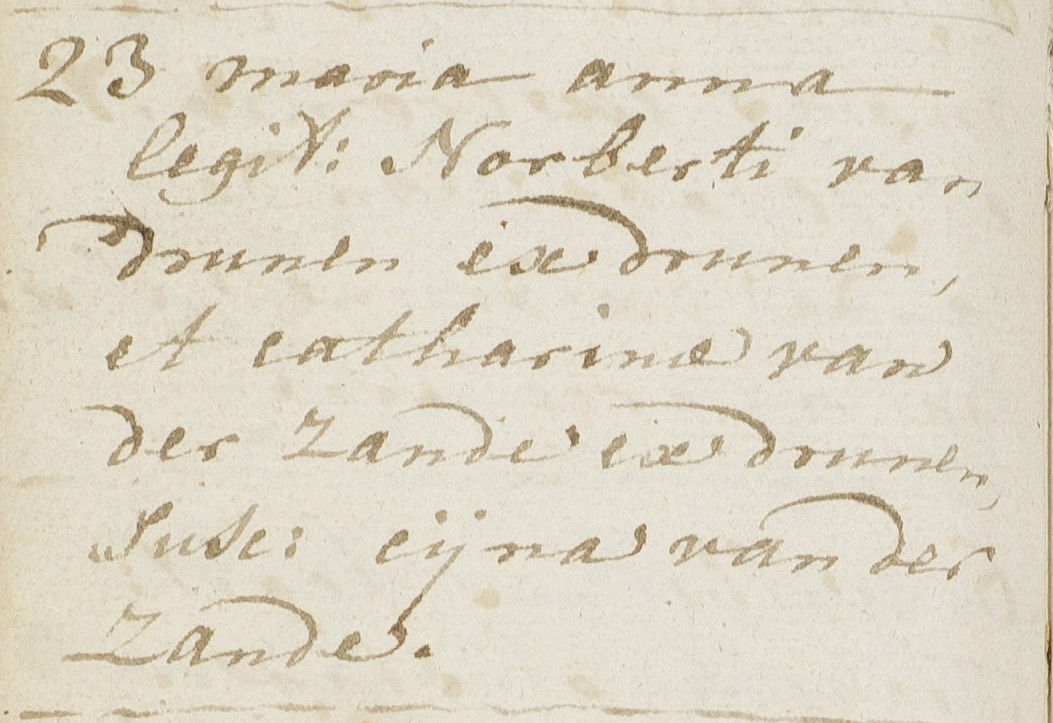 23 maria anna
legit: Norberti van
drunen ex drunen,
et catharine van
der Zande ex drunen,
Susc: eijna van der
Zande.